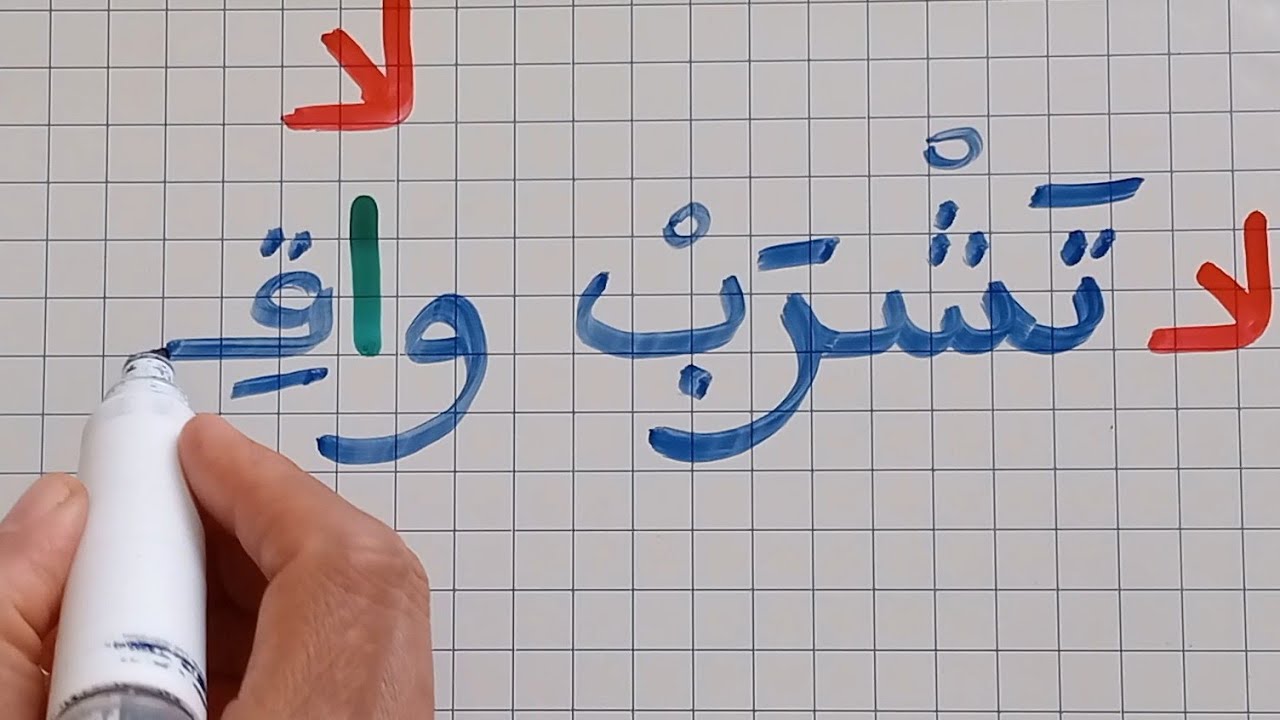 لا
لا تَشْرَبْ واقِـ